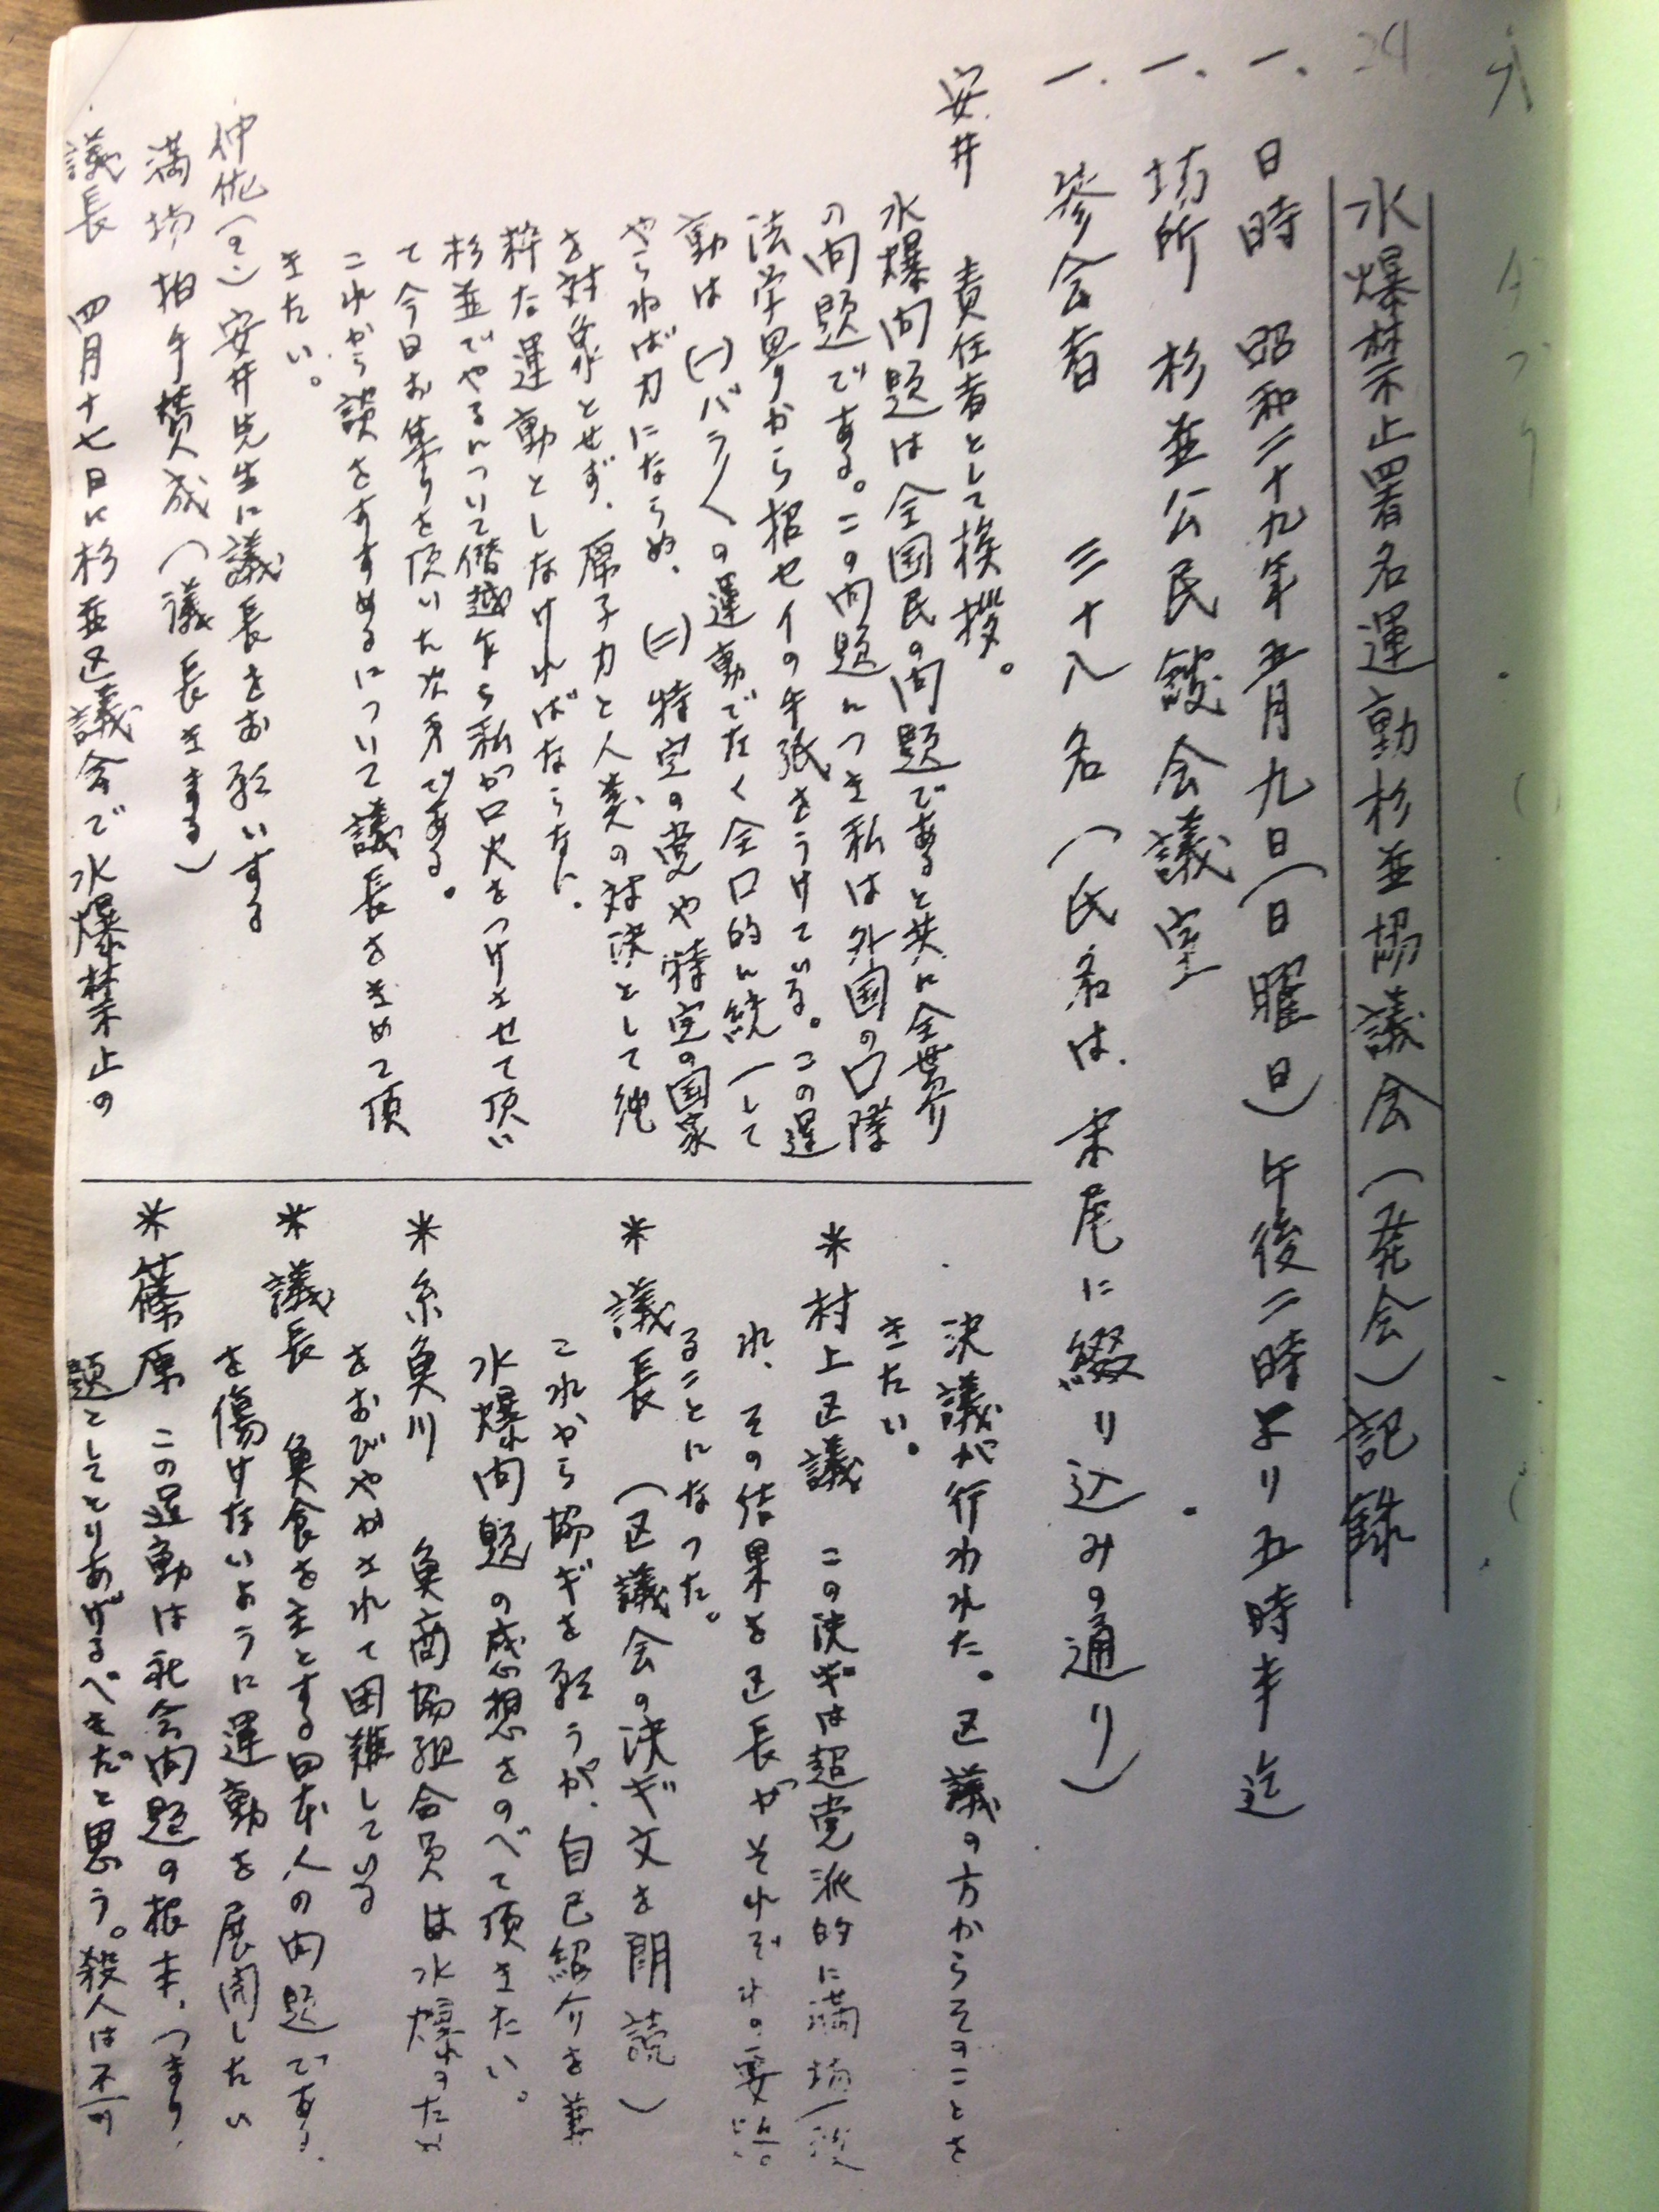 水爆禁止署名運動杉並協議会(発会)記録
一、日時 昭和二十九年五月九日(日曜日)午後二時より五時半迄
一、場所 杉並公民館会議室
一、参会者 三十八名(氏名は、末尾に綴り込みの通り)
安井 責任者として挨拶。
水爆問題は全国民の問題であると共に全世界
の問題である。この問題につき私は外国の口際
法学界から招セイの手紙をうけている。この運
動は(一)バラ〱の運動でなく全口的に統一して
やらねば力にならぬ、(二)特定の党や特定の国家
を対象とせず、原子力と人類の対決として純
粋な運動としなければならない。
杉並でやるについて僭越乍ら私が口火をつけさせて頂い
て今日お集りを頂いた次第である。
これから議をすすめるについて議長をきめて頂
きたい。
仲佐(マヽ)安井先生に議長をお願いする
満場拍手賛成(議長きまる)
議長 四月十七日に杉並区議会で水爆禁止の
決議が行われた。区議の方からそのことを
きたい。
*村上区議 この決ギは超党派的に満場一致
れ、その結果を区長がそれぞれの要路
ることになった。
*議長 (区議会の決ギ文を朗読)
これから協ギを願うが、自己紹介を兼
水爆問題の感想をのべて頂きたい。
*糸魚川 魚商協組合員は水爆のため
をおびやかされて困難している
*議長 魚食を主とする日本人の問題であり、
を傷けないように運動を展開したい
*篠原 この運動は社会問題の根本、つまり、
題としてとりあげるべきだと思う。殺人は不可